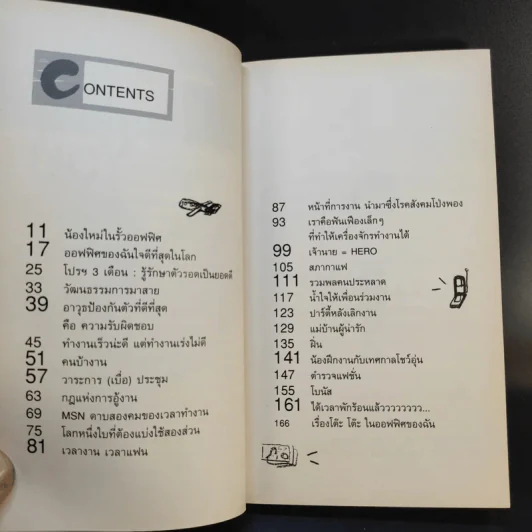 CONTENTS
11 น้องใหม่ในรั้วออฟฟิศ
17 ออฟฟิศของฉันใจดีที่สุดในโลก
25 โปรฯ 3 เดือน : รู้รักษาตัวรอดเป็นยอดดี
33 วัฒนธรรมการมาสาย
39 อาวุธป้องกันตัวที่ดีที่สุด
คือ ความรับผิดชอบ
45 ทำงานเร็วน่ะดี แต่ทำงานเร่งไม่ดี
51 คนบ้างาน
57 วาระการ (เบื่อ) ประชุม
63 กฎแห่งการอู้งาน
69 MSN ดาบสองคมของเวลาทำงาน
75 โลกหนึ่งใบที่ต้องแบ่งใช้สองส่วน
81 เวลางาน เวลาแฟน
87 หน้าที่การงาน นำมาซึ่งโรคสังคมโป่งพอง
93 เราคือฟันเฟืองเล็กๆ
ที่ทำให้เครื่องจักรทำงานได้
99 เจ้านาย = HERO
105 สภากาแฟ
111 รวมพลคนประหลาด
117 น้ำใจให้เพื่อนร่วมงาน
123 ปาร์ตี้หลังเลิกงาน
129 แม่บ้านผู้น่ารัก
135 ฝิ่น
141 น้องฝึกงานกับเทศกาลโชว์อุ่น
147 ตำรวจแฟชั่น
155 โบนัส
161 ได้เวลาพักร้อนแล้ววววววว...
166 เรื่องโต๊ะ โต๊ะ ในออฟฟิศของฉัน